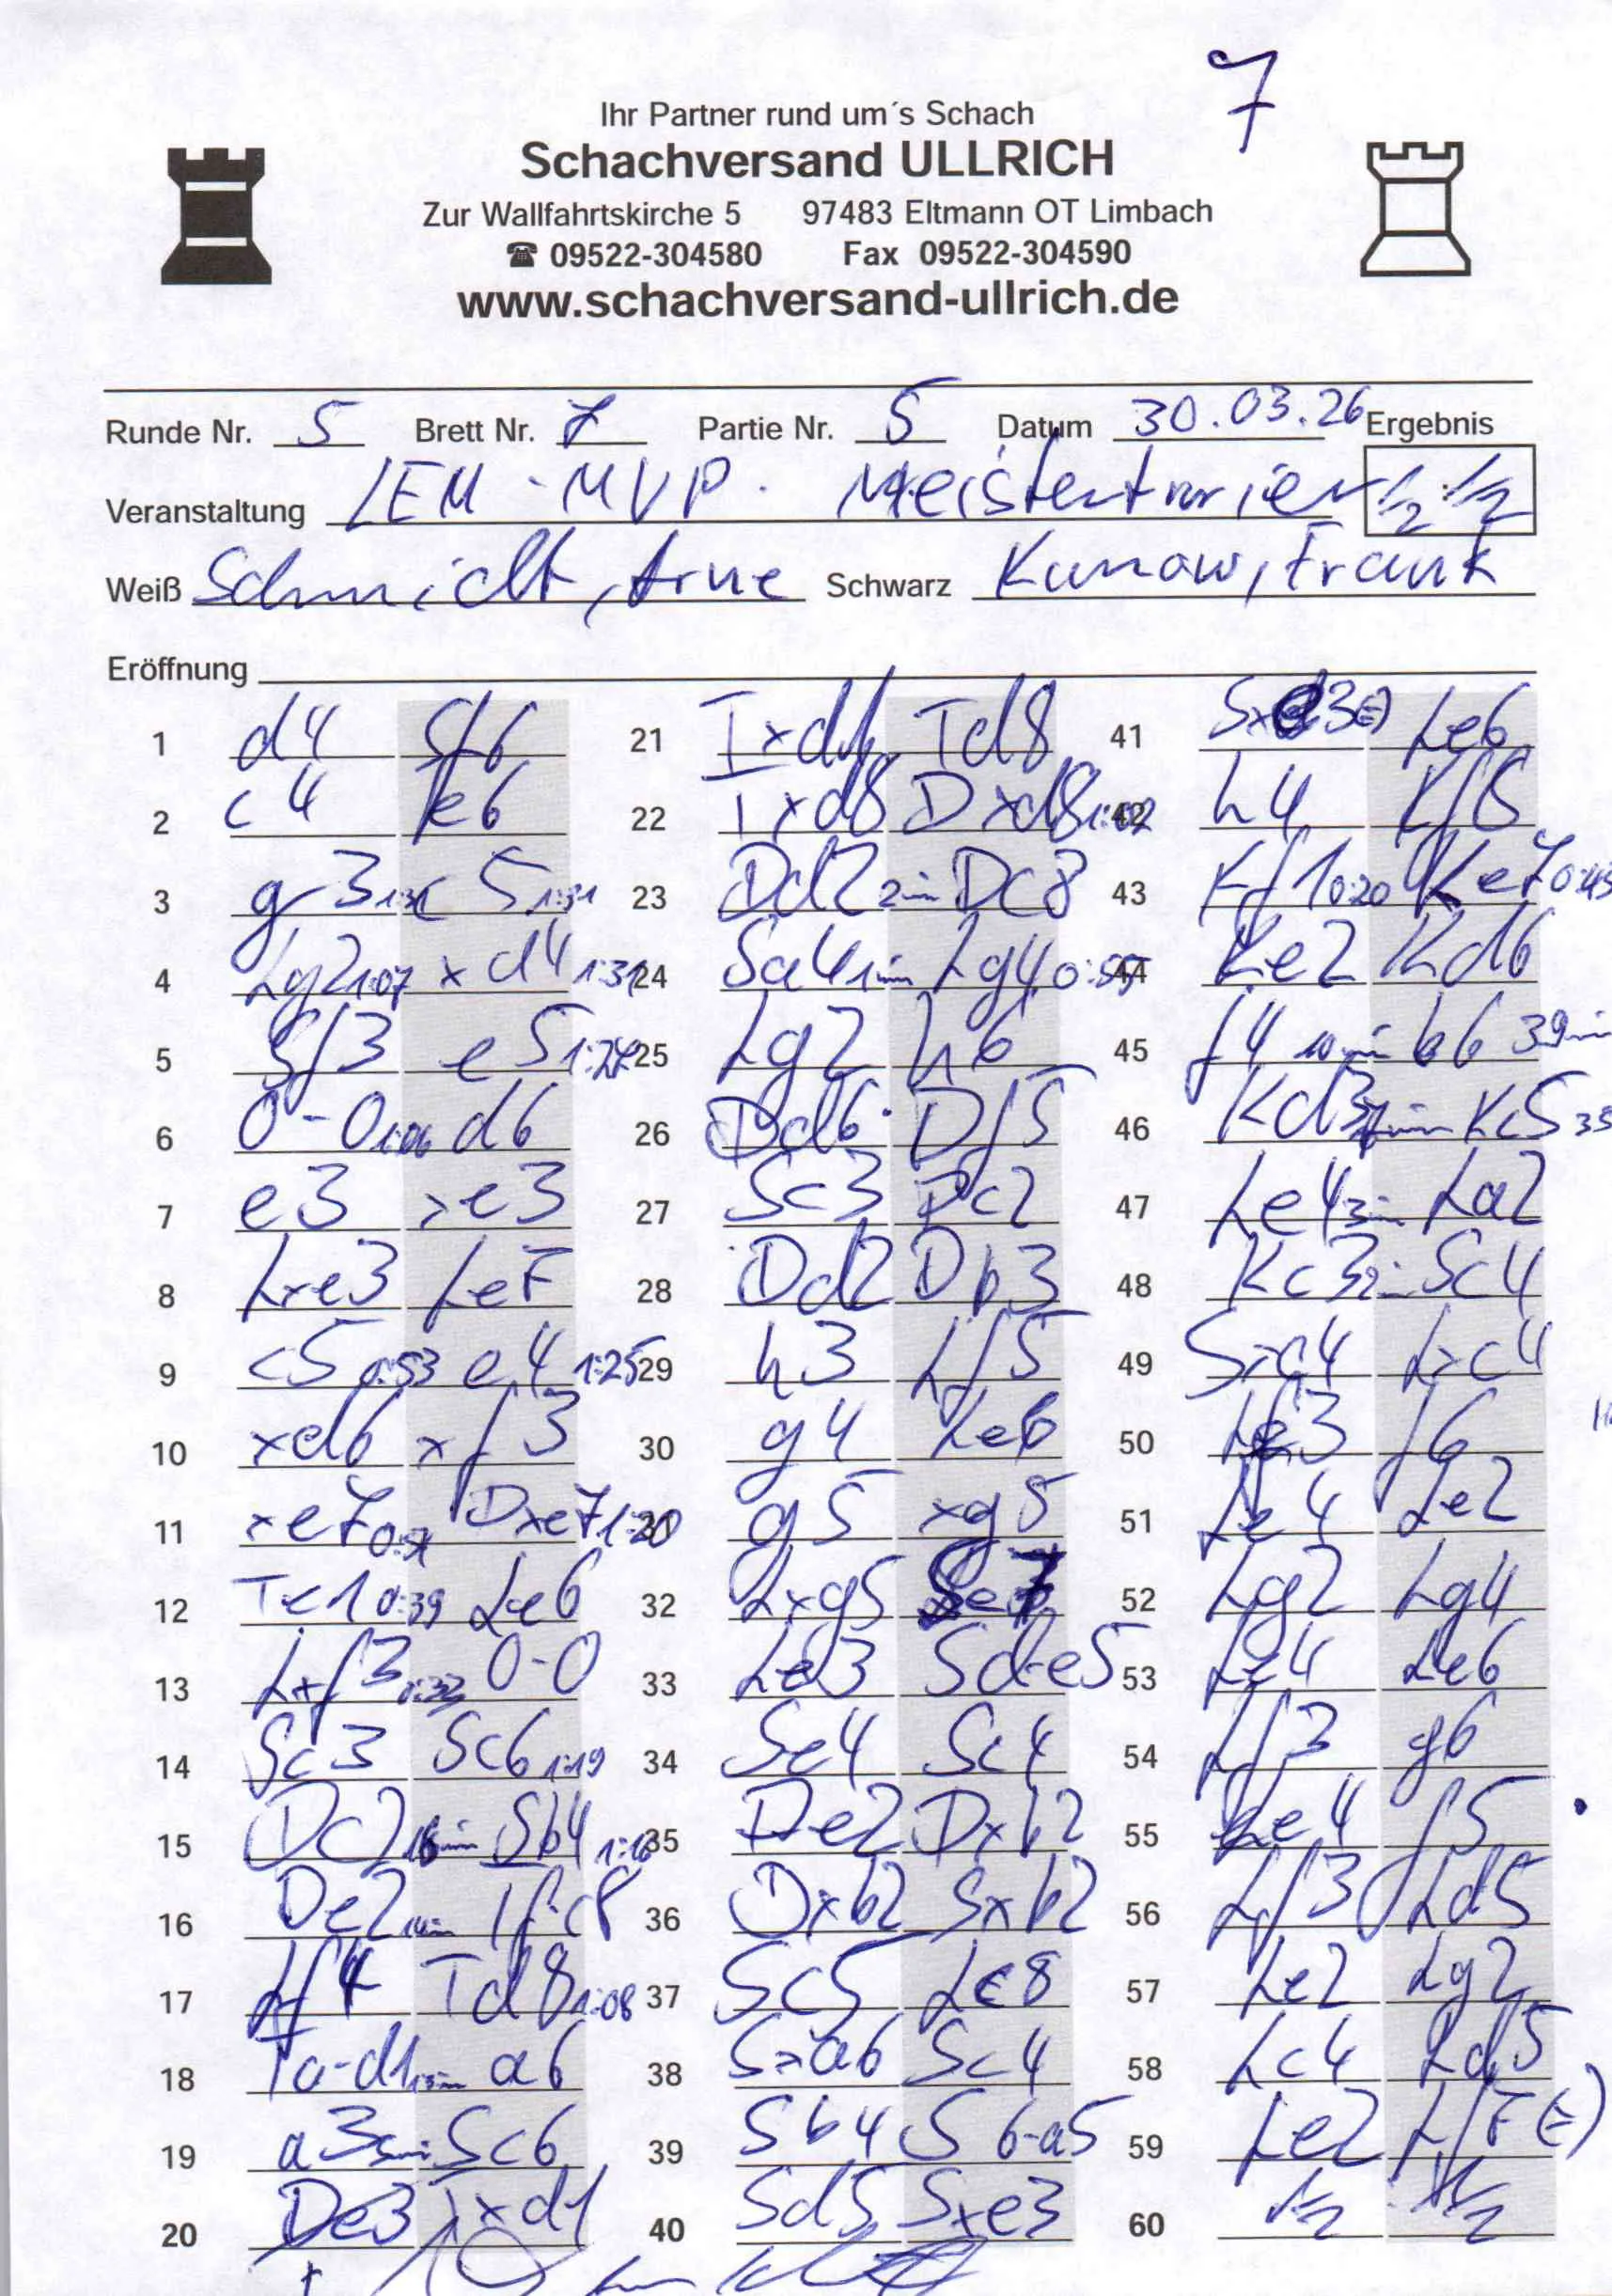 7
Ihr Partner rund um´s Schach
Schachversand ULLRICH
Zur Wallfahrtskirche 5 97483 Eltmann OT Limbach
☎ 09522-304580 Fax 09522-304590
www.schachversand-ullrich.de
Runde Nr. 5 Brett Nr. 7 Partie Nr. 5 Datum 30.03.26 Ergebnis
Veranstaltung LEM-MVP. Meisterturnier 1/2:1/2
Weiß Schmidt, Arne Schwarz Kunow, Frank
Eröffnung
1 d4 Sf6 21 Txd1 Td8 41 Sxe3(=) Le6
2 c4 e6 22 Txd8 Dxd8 1:02 42 h4 Kf8
3 g3 1:31 c5 1:31 23 Dd2 2min Dc8 43 Kf1 0:20 Ke7 0:45
4 Lg2 1:07 xd4 1:31 24 Sa4 1min Lg4 0:55 44 Ke2 Kd6
5 Sf3 e5 25 Lg2 h6 45 f4 10min b6 39min
6 0-0 1:06 d6 26 Dd6 Df5 46 Kd3 Kc5 35
7 e3 xe3 27 Sc3 Dc2 47 Le4 3min La2
8 Lxe3 Le7 28 Dd2 Db3 48 Kc3 2min Sc4
9 c5 0:53 e4 1:25 29 h3 Lf5 49 Sxc4 Lxc4
10 xd6 xf3 30 g4 Le6 50 Lf3 f6
11 xe7 Dxe7 1:20 31 g5 xg5 51 Le4 Le2
12 Te1 0:39 Le6 32 Lxg5 52 Lg2 Lg4
13 Lxf3 0:32 0-0 33 Le3 Sd-e5 53 Le4 Le6
14 Sc3 Sc6 1:19 34 Se4 Sc4 54 Lf3 g6
15 Dc2 16min Sb4 1:16 35 De2 Dxb2 55 Le4 f5
16 De2 Tf-c8 36 Dxb2 Sxb2 56 Lf3 Ld5
17 Lf4 Td8 1:08 37 Sc5 Lc8 57 Le2 Lg2
18 Ta-d1 a6 38 Sxa6 Sc4 58 Lc4 Ld5
19 a3 5min Sc6 39 Sb4 S6-a5 59 Le2 Lf7(=)
20 De3 Txd1 40 Sd5 Sxe3 60 1/2 1/2